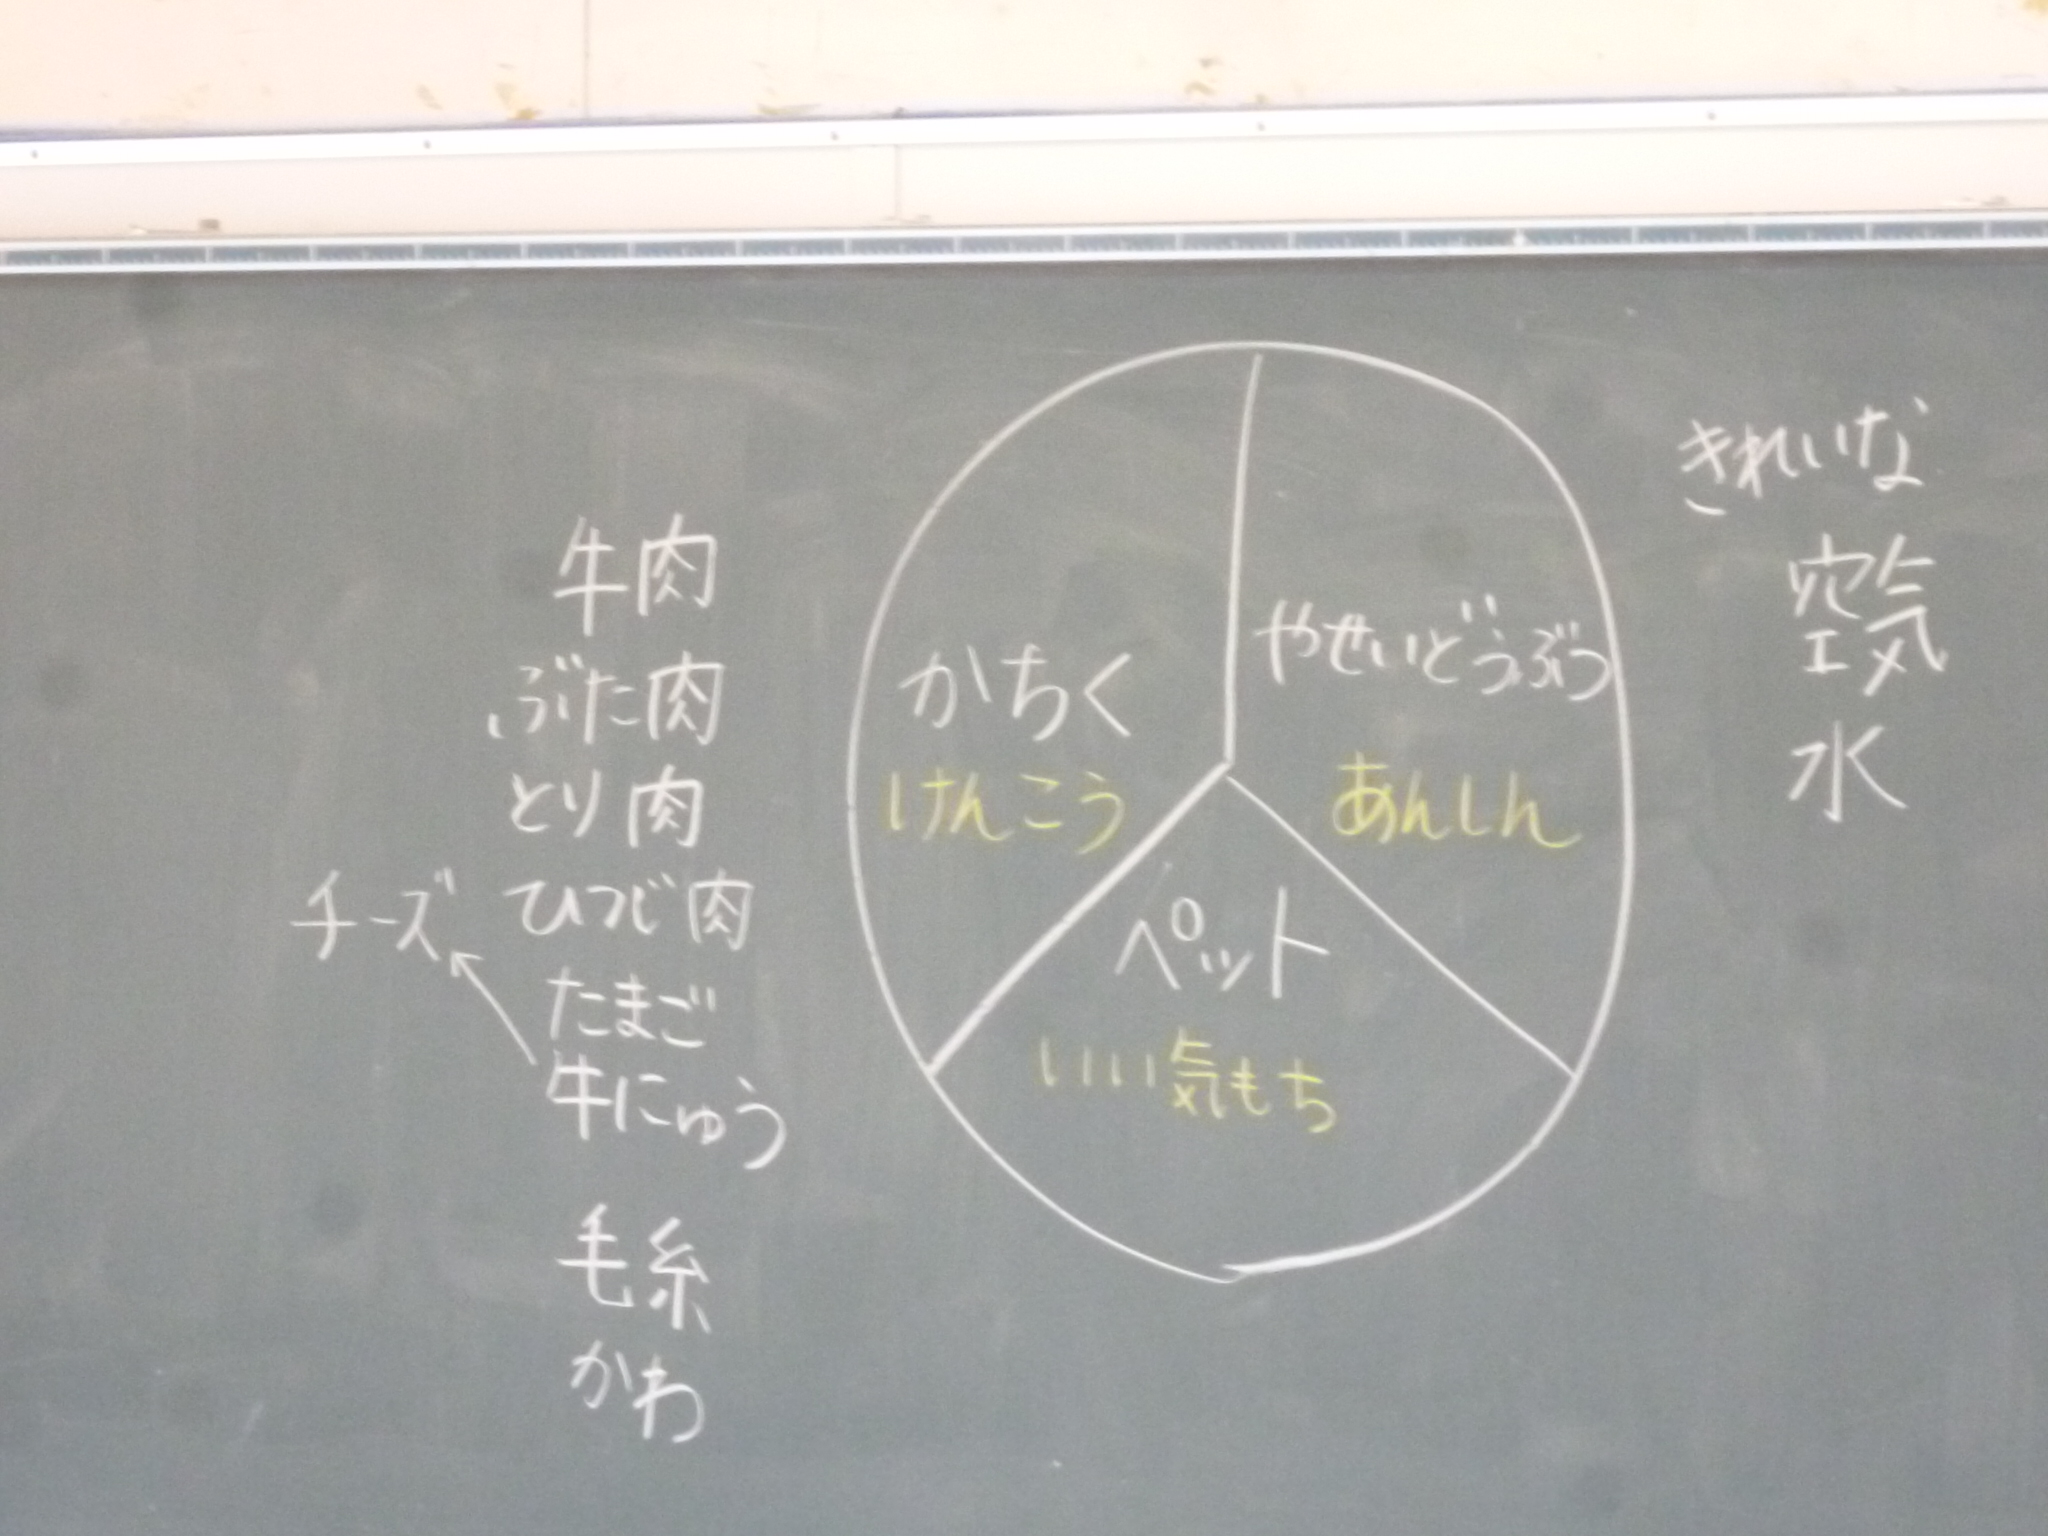 牛肉
ぶた肉
とり肉
ひつじ肉
チーズ
たまご
牛にゅう
毛糸
かわ
かちく
けんこう
やせいどうぶつ
あんしん
ペット
いい気もち
きれいな
空気
水